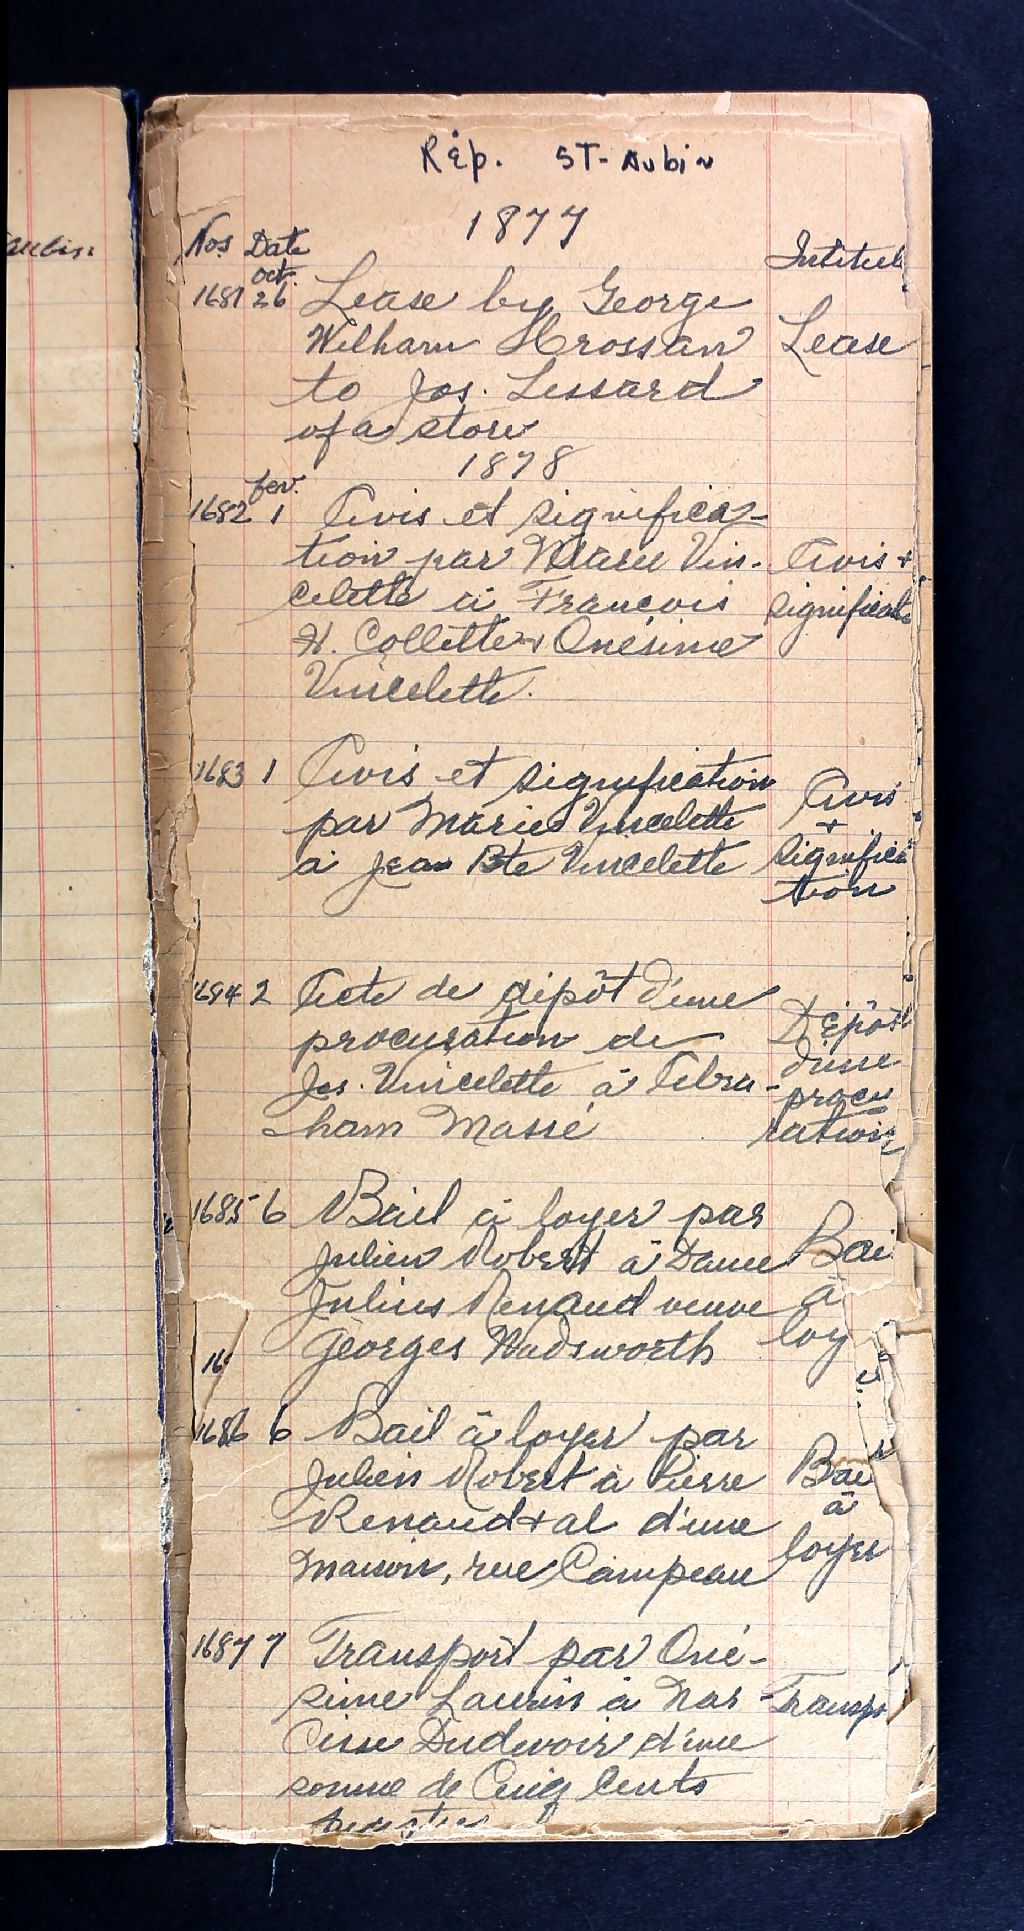 aubin
Rép. ST-Aubin
1877
Nos Date Intitulé
Oct.
1681 26 Lease by George
William Crossan Lease
to Jos. Lessard
of a store
1878
fev.
1682 1 Avis et significa-
tion par Marie Vin- Avis +
celette à Francois significat
H. Collette + Onésime
Vincelette.
1683 1 Avis et signification Avis
par Marie Vincelette +
à Jean Bte Vincelette significa
tion
1684 2 Acte de dépôt d'une Dépôt
procuration de d'une
Jos. Vincelette à Abra- procu
ham Massé ration
1685 6 Bail à loyer par
Julien Robert à Dame Bai
Julius Renaud veuve à
Georges Wadsworth loy
16
1686 6 Bail à loyer par
Julien Robert à Pierre Bai
Renaud + al d'une à
maison, rue Campeau loyer
1687 7 Transport par Oné-
sime Laurin à Nar- Transp
cisse Dudevoir d'une
somme de Cinq cents